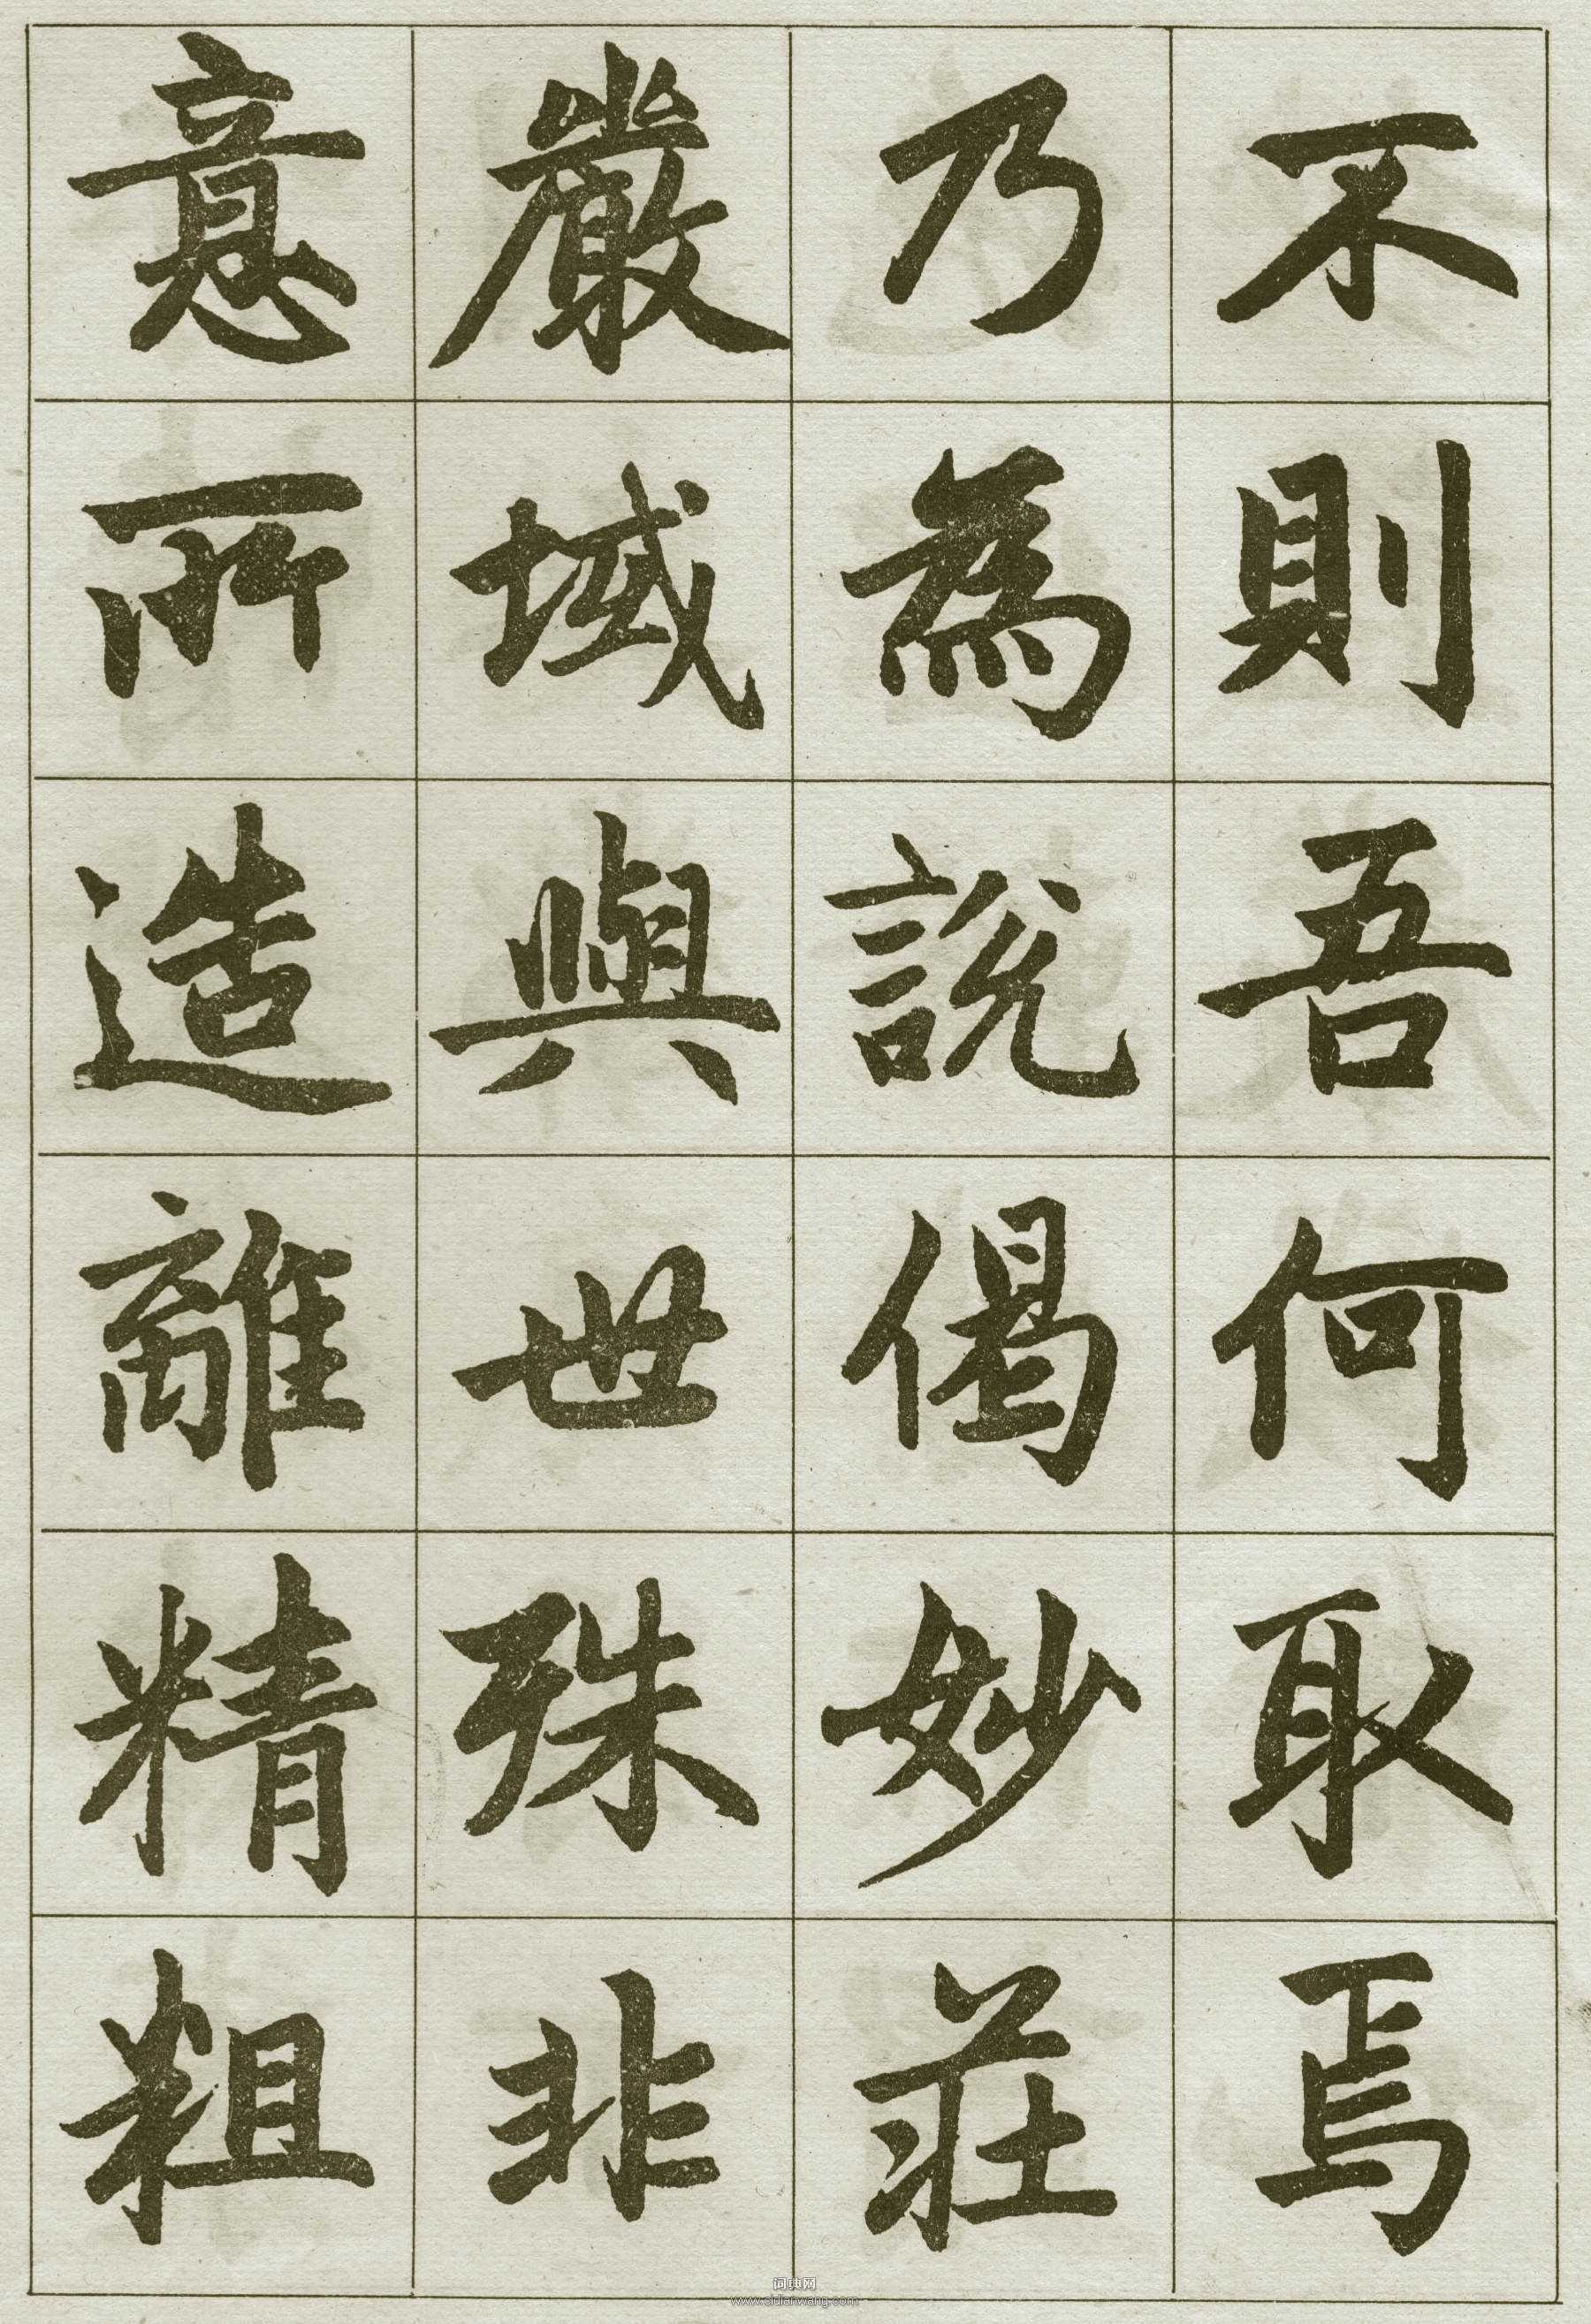 不則吾何取焉
乃為說偈妙莊
嚴域與世殊非
意所造離精粗
词典网
www.cidianwang.com